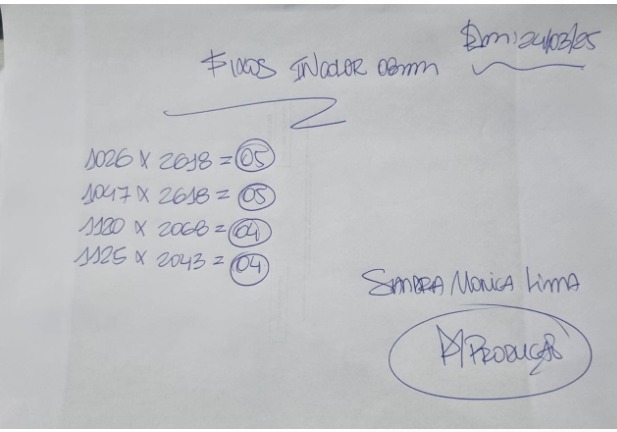 Em: 24/03/25
Fixos INCOLOR 08mm
1026 X 2618 = 05
1047 X 2618 = 05
1120 X 2068 = 04
1125 X 2043 = 04
SANDRA MONICA LIMA
P/ PRODUÇÃO